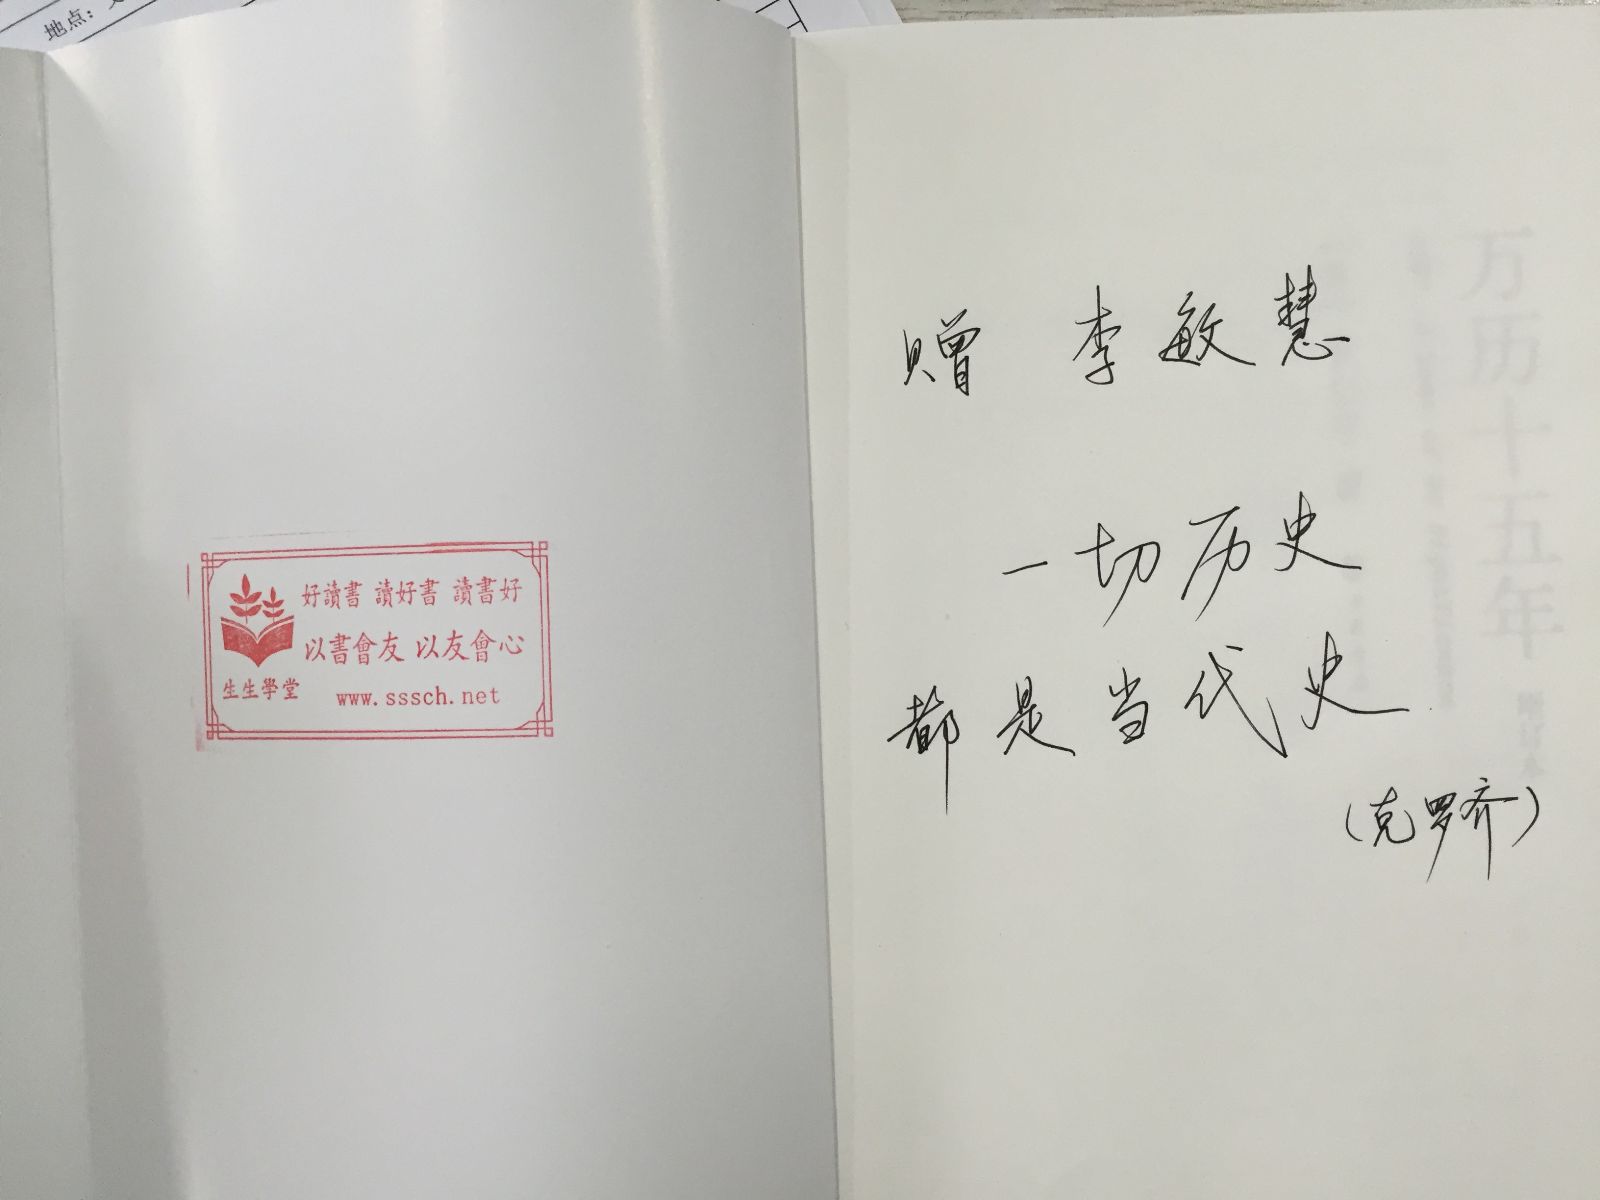 地点：
好讀書 讀好書 讀書好
以書會友 以友會心
生生學堂
www.sssch.net
赠 李敏慧
一切历史
都是当代史
（克罗齐）
万历十五年 增订本